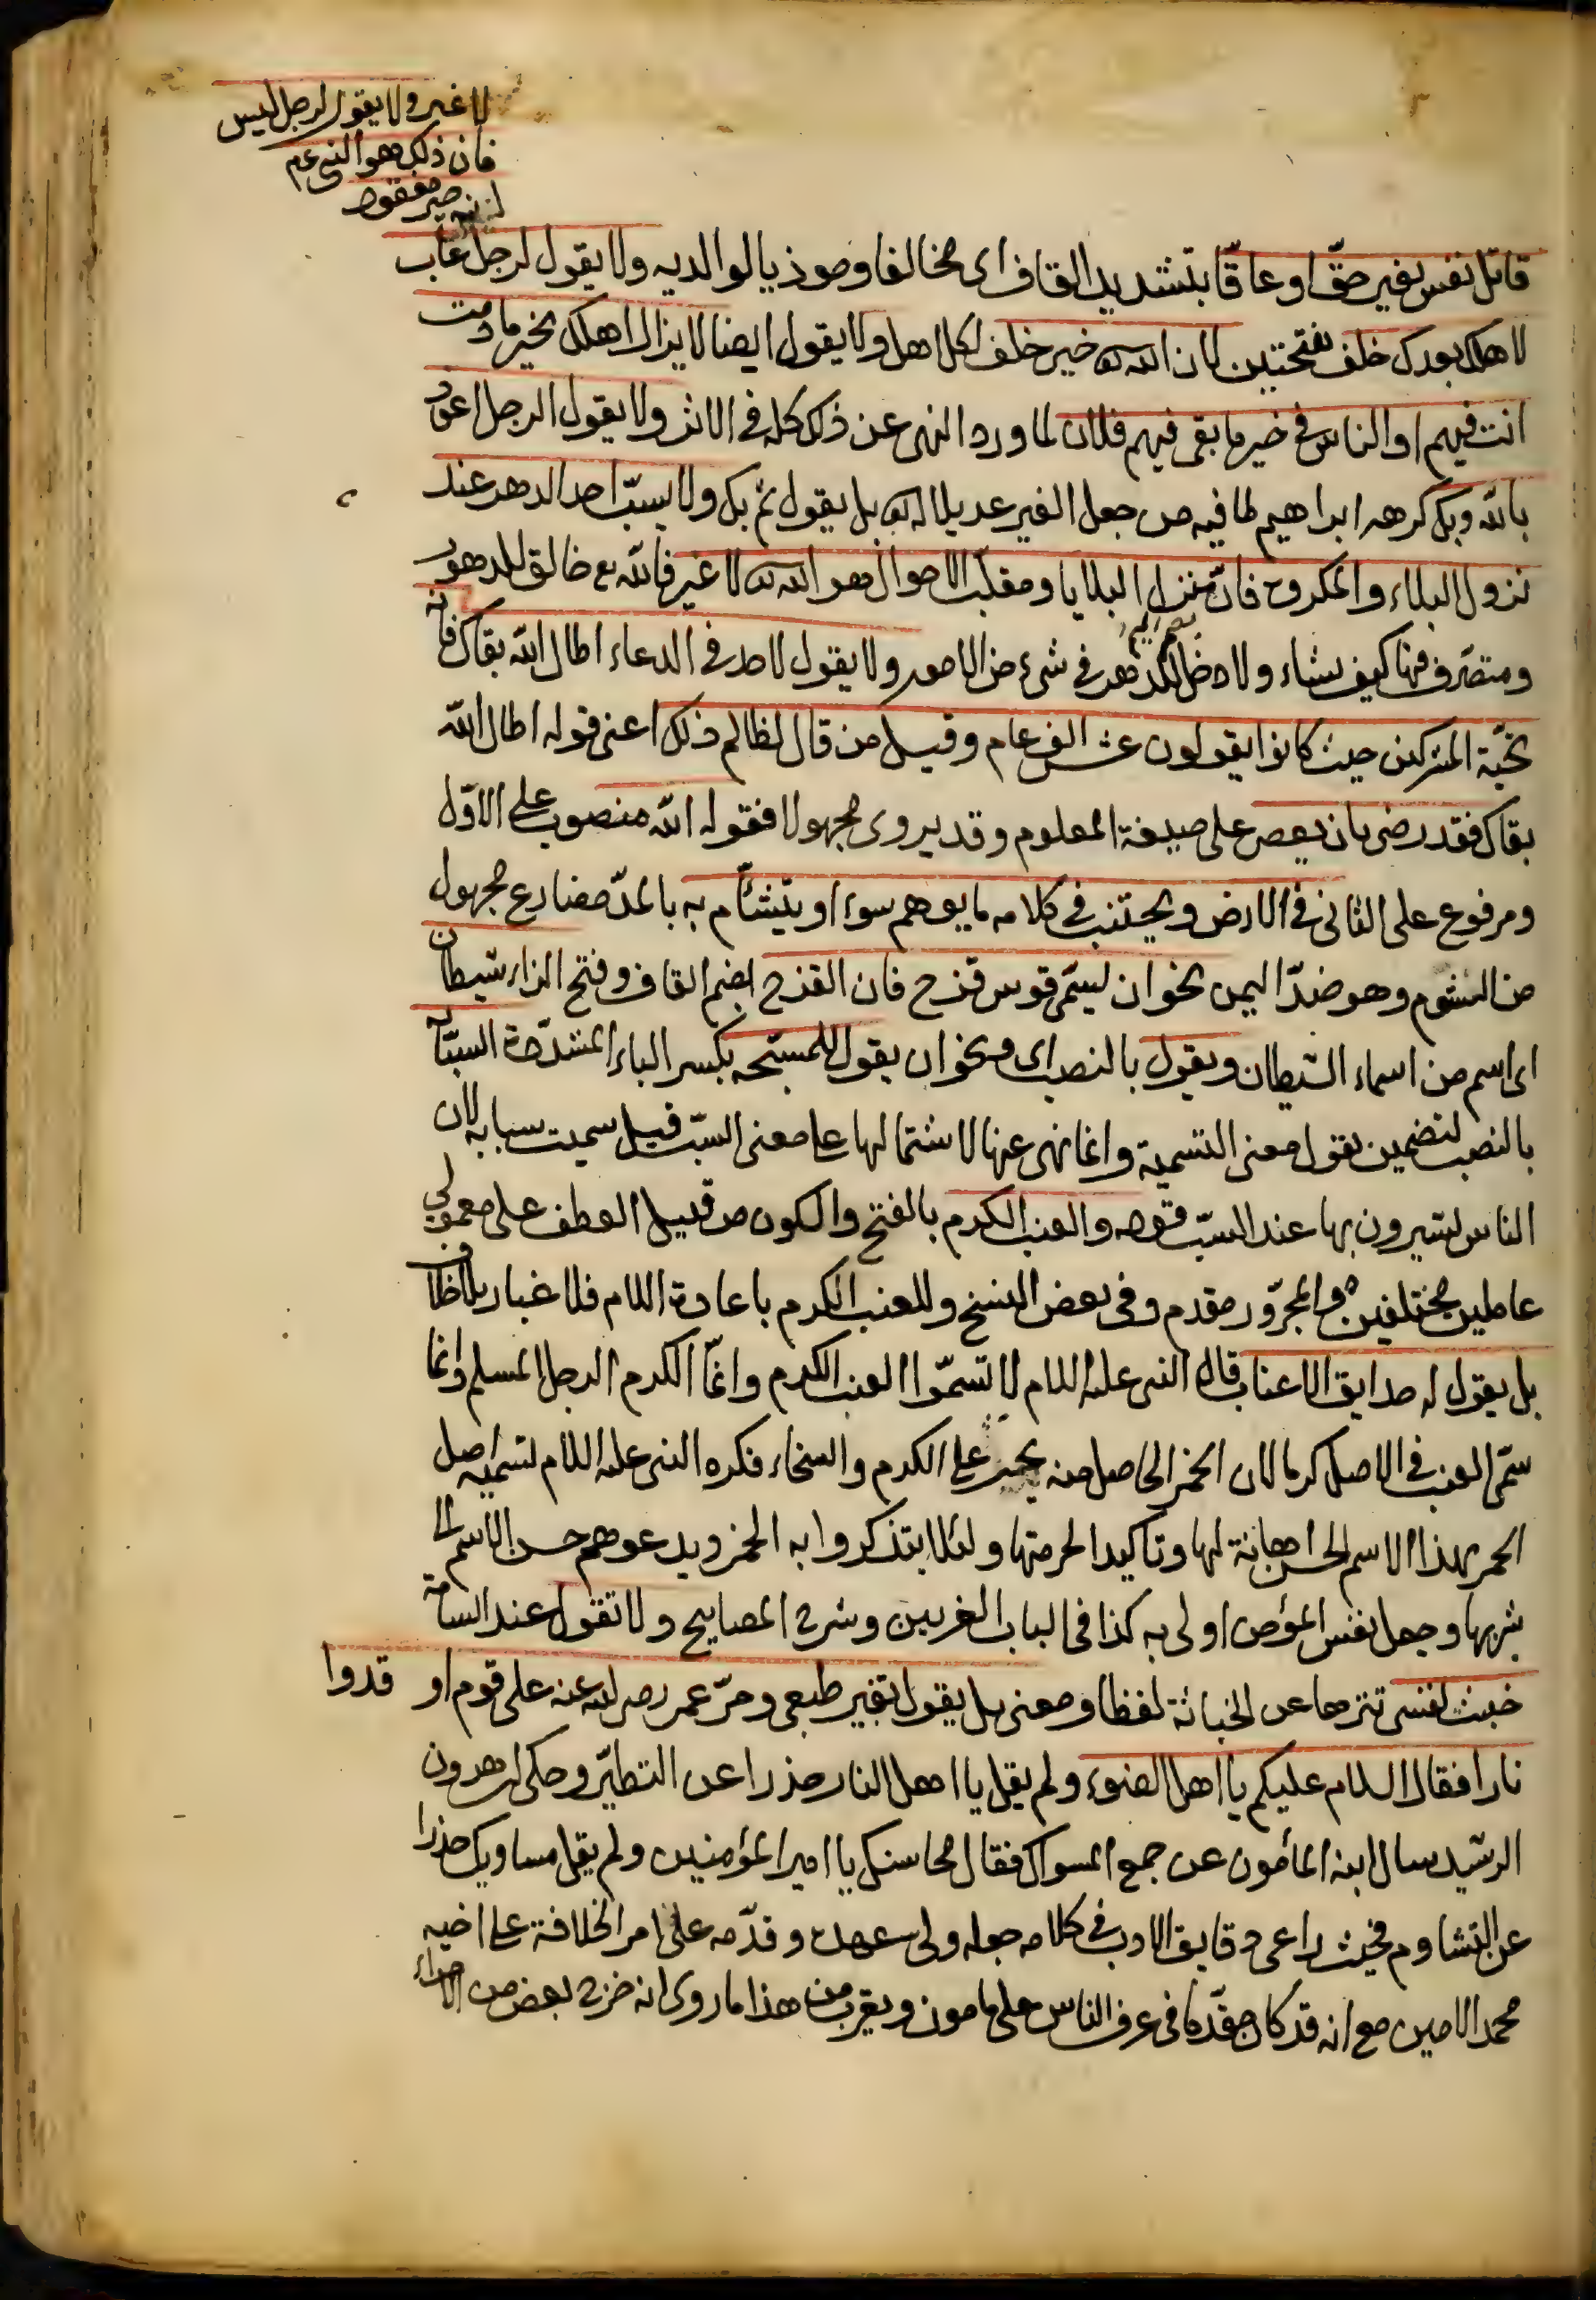 لا غير ولا يقول لرجل ليس
فان ذلك هو النبي عم
غير مفقود
قاتل نفس بغير حقّ او عاقّا بتشديد القاف اى مخالفا وموذيا لوالديه ولا يقول لرجل غاب
لا هلك بعدك خلف بفتحتين لان الله تع خير خلف لكل اهل ولا يقول ايضا لا يزال اهلك بخير ما دمت
انت فيهم او الناس فى خير ما بقى فيهم فلان لما ورد النهى عن ذلك كله فى الاثر ولا يقول الرجل اعوذ
بالله وبك كرهه ابراهيم لما فيه من جعل الغير عديلا له تع بل يقول ثم بك ولا يسبّ احد الدهر عند
نزول البلاء والمكروه فانّ منزل البلايا ومقلّب الاحوال هو الله تع لا غير فالله تع خالق للدهور
ومتصرّف فيها كيف يشاء ولا دخل للدهر فى شىء من الامور ولا يقول لاحد فى الدعاء اطال الله بقاك فانه
تحيّة المشركين حيث كانوا يقولون عش الف عام وقيل من قال لظالم ذلك اعنى قوله اطال الله
بقاك فقد رضى بان يعصى على صيغة المعلوم وقد يروى مجهولا فقوله الله منصوب على الاوّل
ومرفوع على الثانى فى الارض ويجتنب فى كلامه ما يوهم سوء او يتشأم به بالمدّ مضارع مجهول
من الشوم وهو ضدّ اليمن نحو ان يسمّى قوس قزح فان القزح بضم القاف وفتح الزاء شيطان
اى اسم من اسماء الشيطان ويقول بالنصب اى ونحو ان يقول للمسبّحه بكسر الباء المشدّدة السبّابة
بالنصب لتضمين يقول معنى التسمية وانما نهى عنها لاشتمالها على معنى السبّ قيل سميت سبابه لان
الناس يشيرون بها عند السبّ وقوله والعنب الكرم بالفتح والسكون من قبيل العطف على معمولى
عاملين مختلفين والمجرور مقدم وفى بعض النسخ وللعنب الكرم باعادة اللام فلا غبار بلا خلاف
بل يقول له حدايق الاعناب قال النبى عليه السلام لا تسمّوا العنب الكرم وانّما الكرم الرجل المسلم وانما
سمّى العنب فى الاصل كرما لان الخمر الحاصل منه يحث على الكرم والسخاء فكره النبى عليه السلام تسمية اصل
الخمر بهذا الاسم الحسن اهانة لها وتاكيدا لحرمتها ولئلا يتذكروا به الخمر ويدعوهم حسن الاسم الى
شربها وجعل نفس المؤمن اولى به كذا فى لباب الغريبين وشرح المصابيح ولا تقول عند السامة
خبثت نفسى تنزها عن الخباثة لفظا ومعنى بل يقول تغير طبعى ومرّ عمر رضى الله عنه على قوم اوقدوا
نارا فقال السلام عليكم يا اهل الضوء ولم يقل يا اهل النار حذرا عن التطيّر وحكى ان هرون
الرشيد سال ابنه المأمون عن جمع المسواك فقال محاسنك يا امير المؤمنين ولم يقل مساويك حذرا
عن التشاوم فحيث راعى دقايق الادب فى كلامه جعله ولى عهده وقدّمه على امر الخلافة على اخيه
محمد الامين مع انه قد كان مقدّما فى عرف الناس على مامون ويقرب من هذا ما روى انه خرج بعض من الامراء